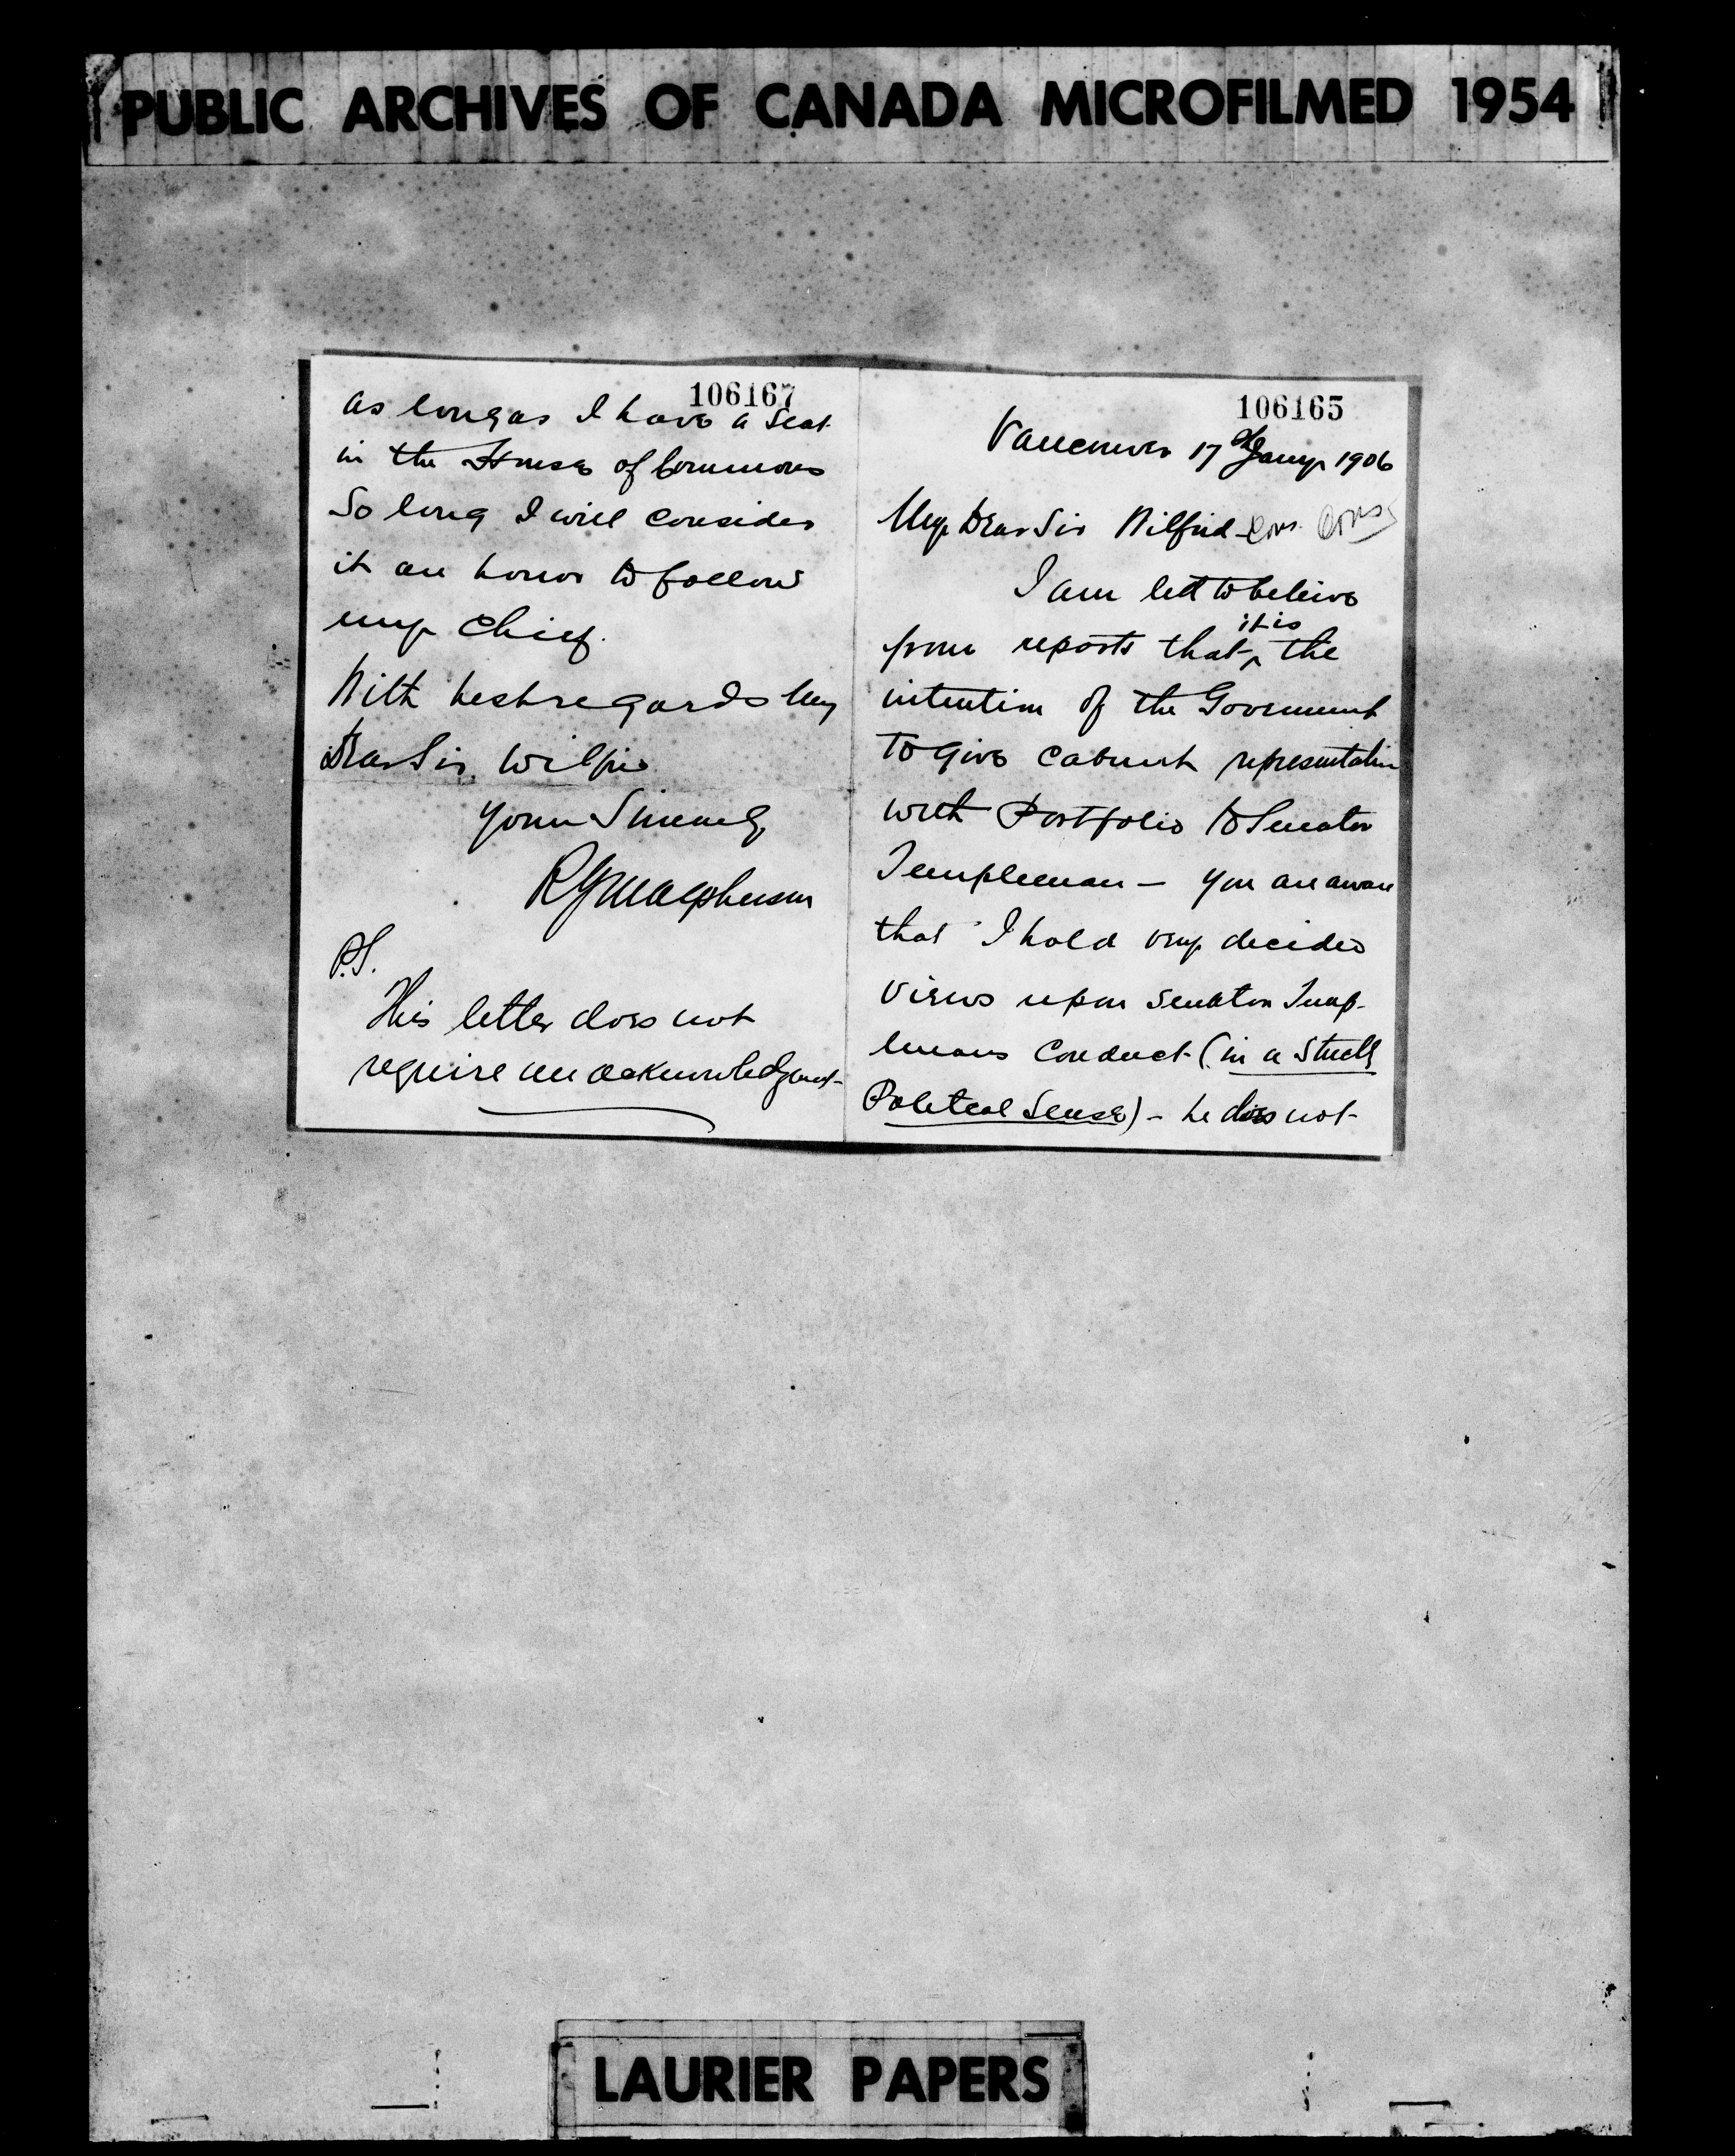 PUBLIC ARCHIVES OF CANADA MICROFILMED 1954
106167
as long as I have a seat
in the House of Commons
So long I will consider
it an honor to follow
my Chief.
With best regards My
Dear Sir Wilfrid
Yours Sincerely
R G Macpherson
P.S.
This letter does not
require an acknowledgment
106165
Vancouver 17th Jany 1906
My Dear Sir Wilfrid
I am led to believe
from reports that it is the
intention of the Government
to give Cabinet representation
with Portfolio to Senator
Templeman — You are aware
that I hold very decided
views upon Senator Temp-
lemans Conduct (in a strictly
Political Sense) - he does not
LAURIER PAPERS